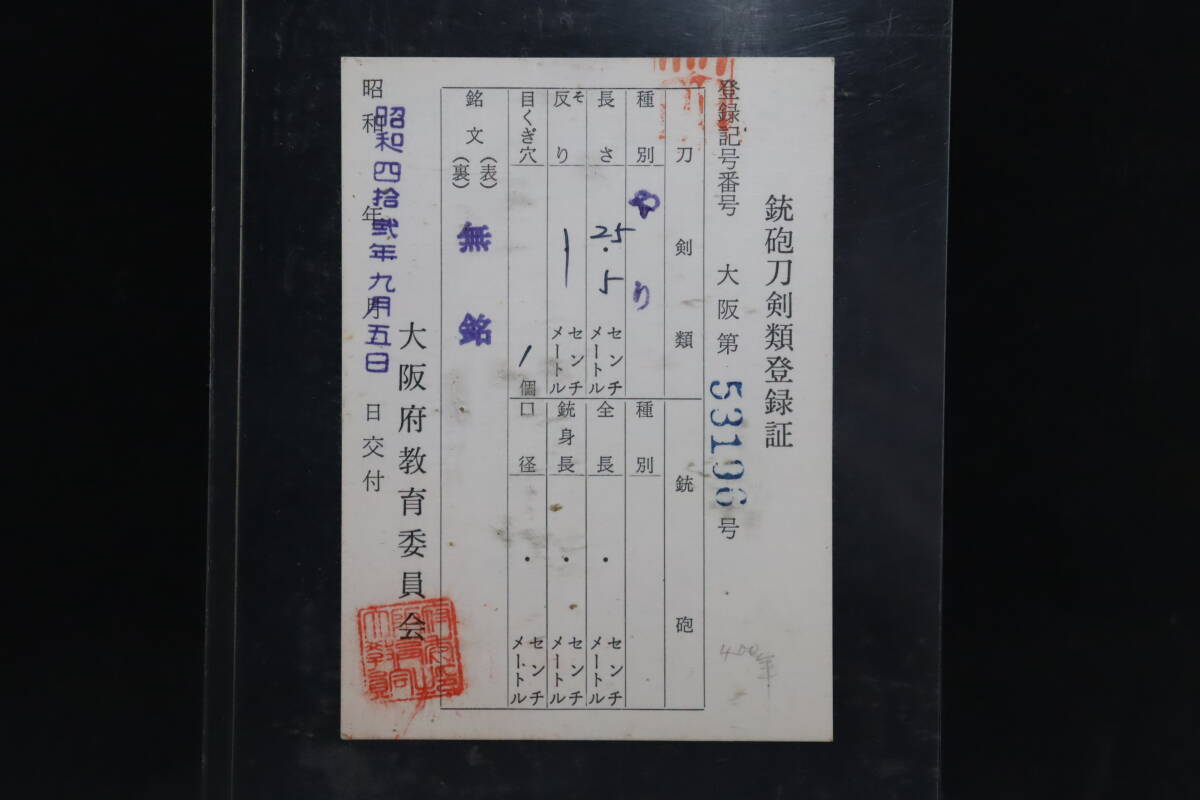 銃砲刀剣類登録証
登録記号番号 大阪第 53196 号
刀剣類
種別 やり
長さ 25.5 センチメートル
反り そ センチメートル
目くぎ穴 1 個
銘文 (表) (裏) 無銘
銃砲
種別
全長 ・ センチメートル
銃身長 ・ センチメートル
口径 ・ センチメートル
大阪府教育委員会
昭和 年 月 日交付
昭和四拾弐年九月五日
400年